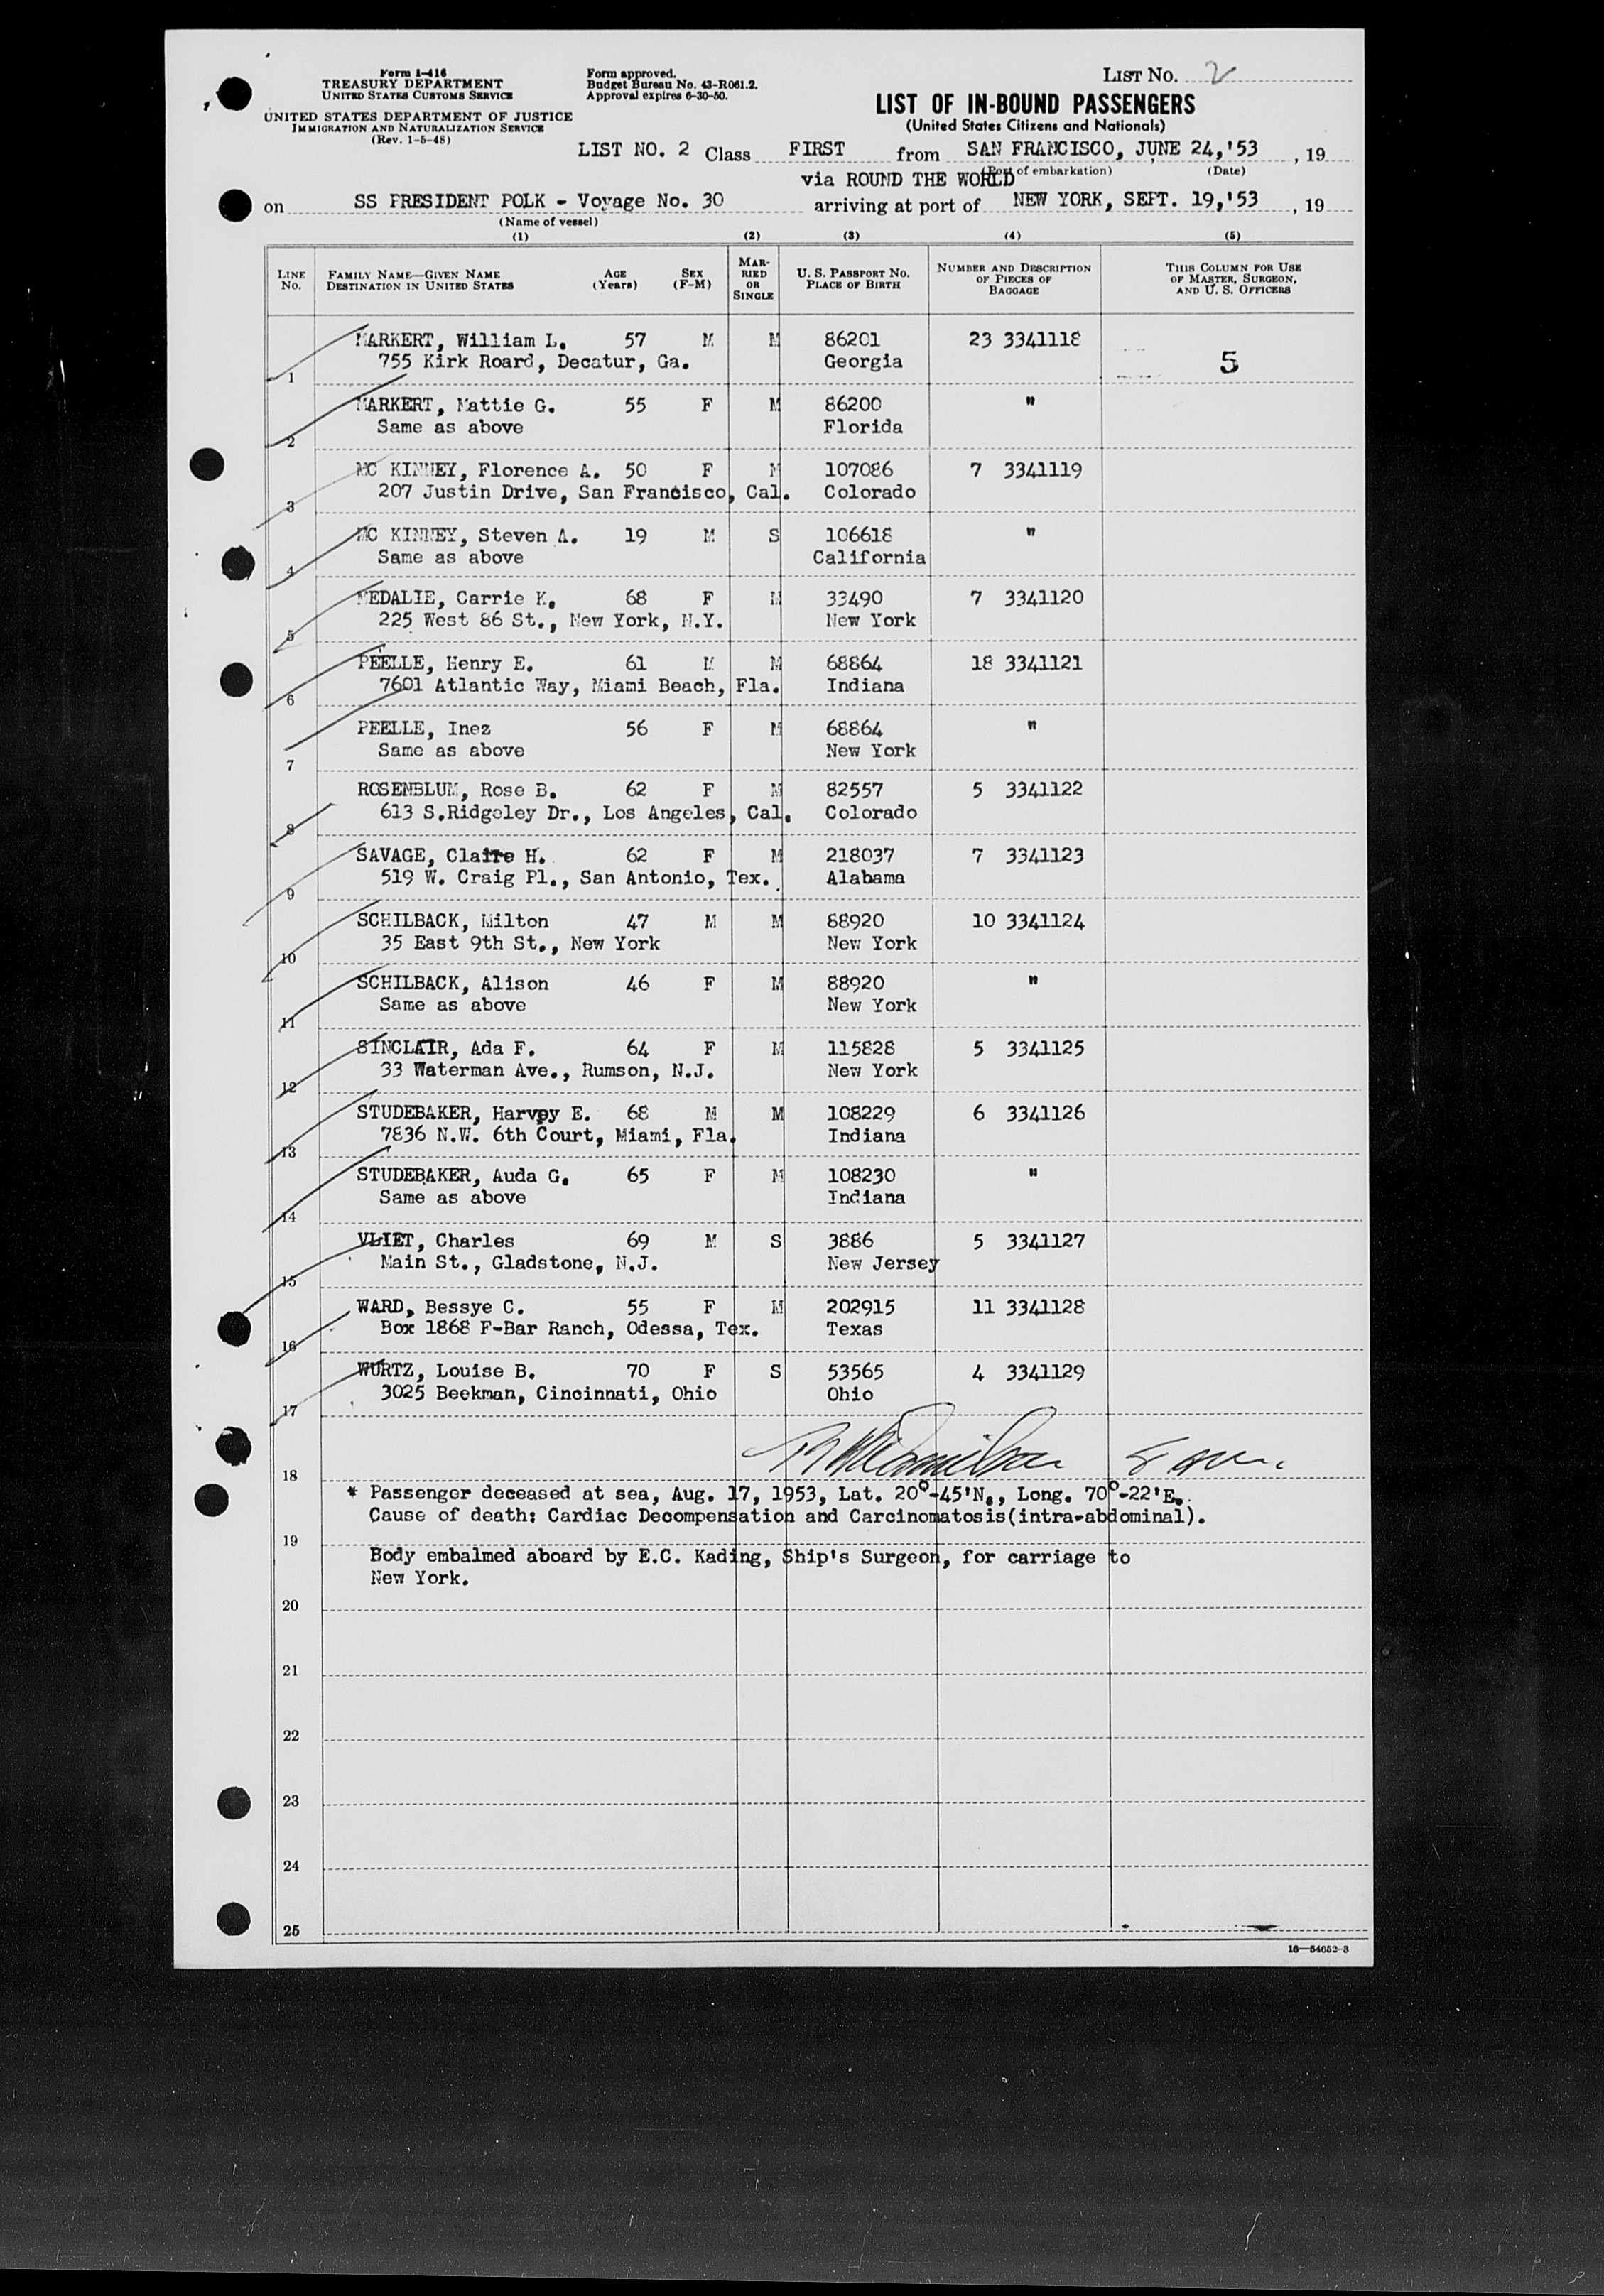 Form I-416
TREASURY DEPARTMENT
UNITED STATES CUSTOMS SERVICE
UNITED STATES DEPARTMENT OF JUSTICE
IMMIGRATION AND NATURALIZATION SERVICE
(Rev. 1-5-48)
Form approved.
Budget Bureau No. 43-R061.2.
Approval expires 6-30-50.
LIST NO. 2
LIST OF IN-BOUND PASSENGERS
(United States Citizens and Nationals)
LIST NO. 2 Class FIRST from SAN FRANCISCO, JUNE 24,'53, 19
(Port of embarkation) (Date)
via ROUND THE WORLD
on SS PRESIDENT POLK - Voyage No. 30 arriving at port of NEW YORK, SEPT. 19,'53, 19
(Name of vessel)
(1) (2) (3) (4) (5)
LINE NO. FAMILY NAME—GIVEN NAME DESTINATION IN UNITED STATES AGE (Years) SEX (F-M) MARRIED OR SINGLE U. S. PASSPORT NO. PLACE OF BIRTH NUMBER AND DESCRIPTION OF PIECES OF BAGGAGE THIS COLUMN FOR USE OF MASTER, SURGEON, AND U. S. OFFICERS
MARKERT, William L. 57 M M 86201 23 3341118
1 755 Kirk Roard, Decatur, Ga. Georgia 5
MARKERT, Mattie G. 55 F M 86200 "
2 Same as above Florida
MC KINNEY, Florence A. 50 F M 107086 7 3341119
3 207 Justin Drive, San Francisco, Cal. Colorado
MC KINNEY, Steven A. 19 M S 106618 "
4 Same as above California
MEDALIE, Carrie K. 68 F M 33490 7 3341120
5 225 West 86 St., New York, N.Y. New York
PEELLE, Henry E. 61 M M 68864 18 3341121
6 7601 Atlantic Way, Miami Beach, Fla. Indiana
PEELLE, Inez 56 F M 68864 "
7 Same as above New York
ROSENBLUM, Rose B. 62 F M 82557 5 3341122
8 613 S.Ridgeley Dr., Los Angeles, Cal. Colorado
SAVAGE, Claire H. 62 F M 218037 7 3341123
9 519 W. Craig Pl., San Antonio, Tex. Alabama
SCHILBACK, Milton 47 M M 88920 10 3341124
10 35 East 9th St., New York New York
SCHILBACK, Alison 46 F M 88920 "
11 Same as above New York
SINCLAIR, Ada F. 64 F M 115828 5 3341125
12 33 Waterman Ave., Rumson, N.J. New York
STUDEBAKER, Harvey E. 68 M M 108229 6 3341126
13 7836 N.W. 6th Court, Miami, Fla. Indiana
STUDEBAKER, Auda G. 65 F M 108230 "
14 Same as above Indiana
VLIET, Charles 69 M S 3886 5 3341127
15 Main St., Gladstone, N.J. New Jersey
WARD, Bessye C. 55 F M 202915 11 3341128
16 Box 1868 F-Bar Ranch, Odessa, Tex. Texas
WURTZ, Louise B. 70 F S 53565 4 3341129
17 3025 Beekman, Cincinnati, Ohio Ohio
18
* Passenger deceased at sea, Aug. 17, 1953, Lat. 20°-45'N., Long. 70°-22'E.
Cause of death: Cardiac Decompensation and Carcinomatosis(intra-abdominal).
19
Body embalmed aboard by E.C. Kading, Ship's Surgeon, for carriage to
New York.
20
21
22
23
24
25
16—54652-3